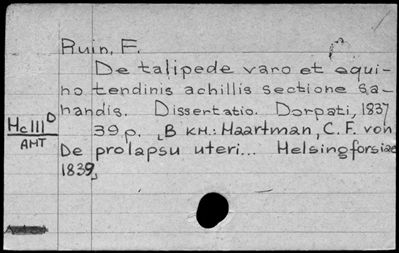 Ruin, F.
De talipede varo et equi-
no tendinis achillis sectione sa-
nandis. Dissertatio. Dorpati, 1837
39 p. [В кн.: Haartman, C. F. von
De prolapsu uteri... Helsingforsiae
1839]
Hc III D
AHT